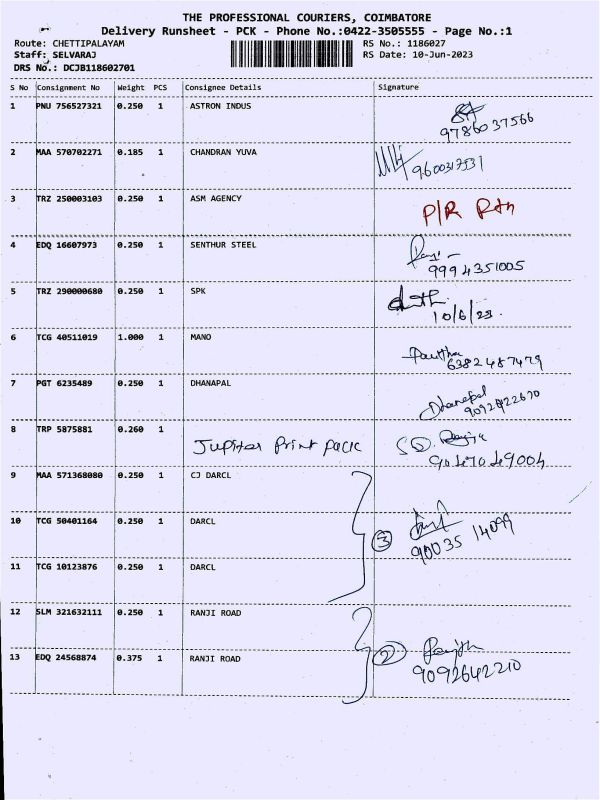 THE PROFESSIONAL COURIERS, COIMBATORE
Delivery Runsheet - PCK - Phone No.:0422-3505555 - Page No.:1
Route: CHETTIPALAYAM RS No.: 1186027
Staff: SELVARAJ RS Date: 10-Jun-2023
DRS No.: DCJB118602701
S No Consignment No Weight PCS Consignee Details Signature
1 PNU 756527321 0.250 1 ASTRON INDUS
9786037566
2 MAA 570702271 0.185 1 CHANDRAN YUVA
3 TRZ 250003103 0.250 1 ASM AGENCY P/R Rtn
4 EDQ 16607973 0.250 1 SENTHUR STEEL
9994351005
5 TRZ 290000680 0.250 1 SPK
10/6/23.
6 TCG 40511019 1.000 1 MANO
6382487479
7 PGT 6235489 0.250 1 DHANAPAL Dhanapal
9092422670
8 TRP 5875881 0.260 1 Jupiter Print pack
9047049004
9 MAA 571368080 0.250 1 CJ DARCL
10 TCG 50401164 0.250 1 DARCL 3
90035 14099
11 TCG 10123876 0.250 1 DARCL
12 SLM 321632111 0.250 1 RANJI ROAD
13 EDQ 24568874 0.375 1 RANJI ROAD 2
9092642210